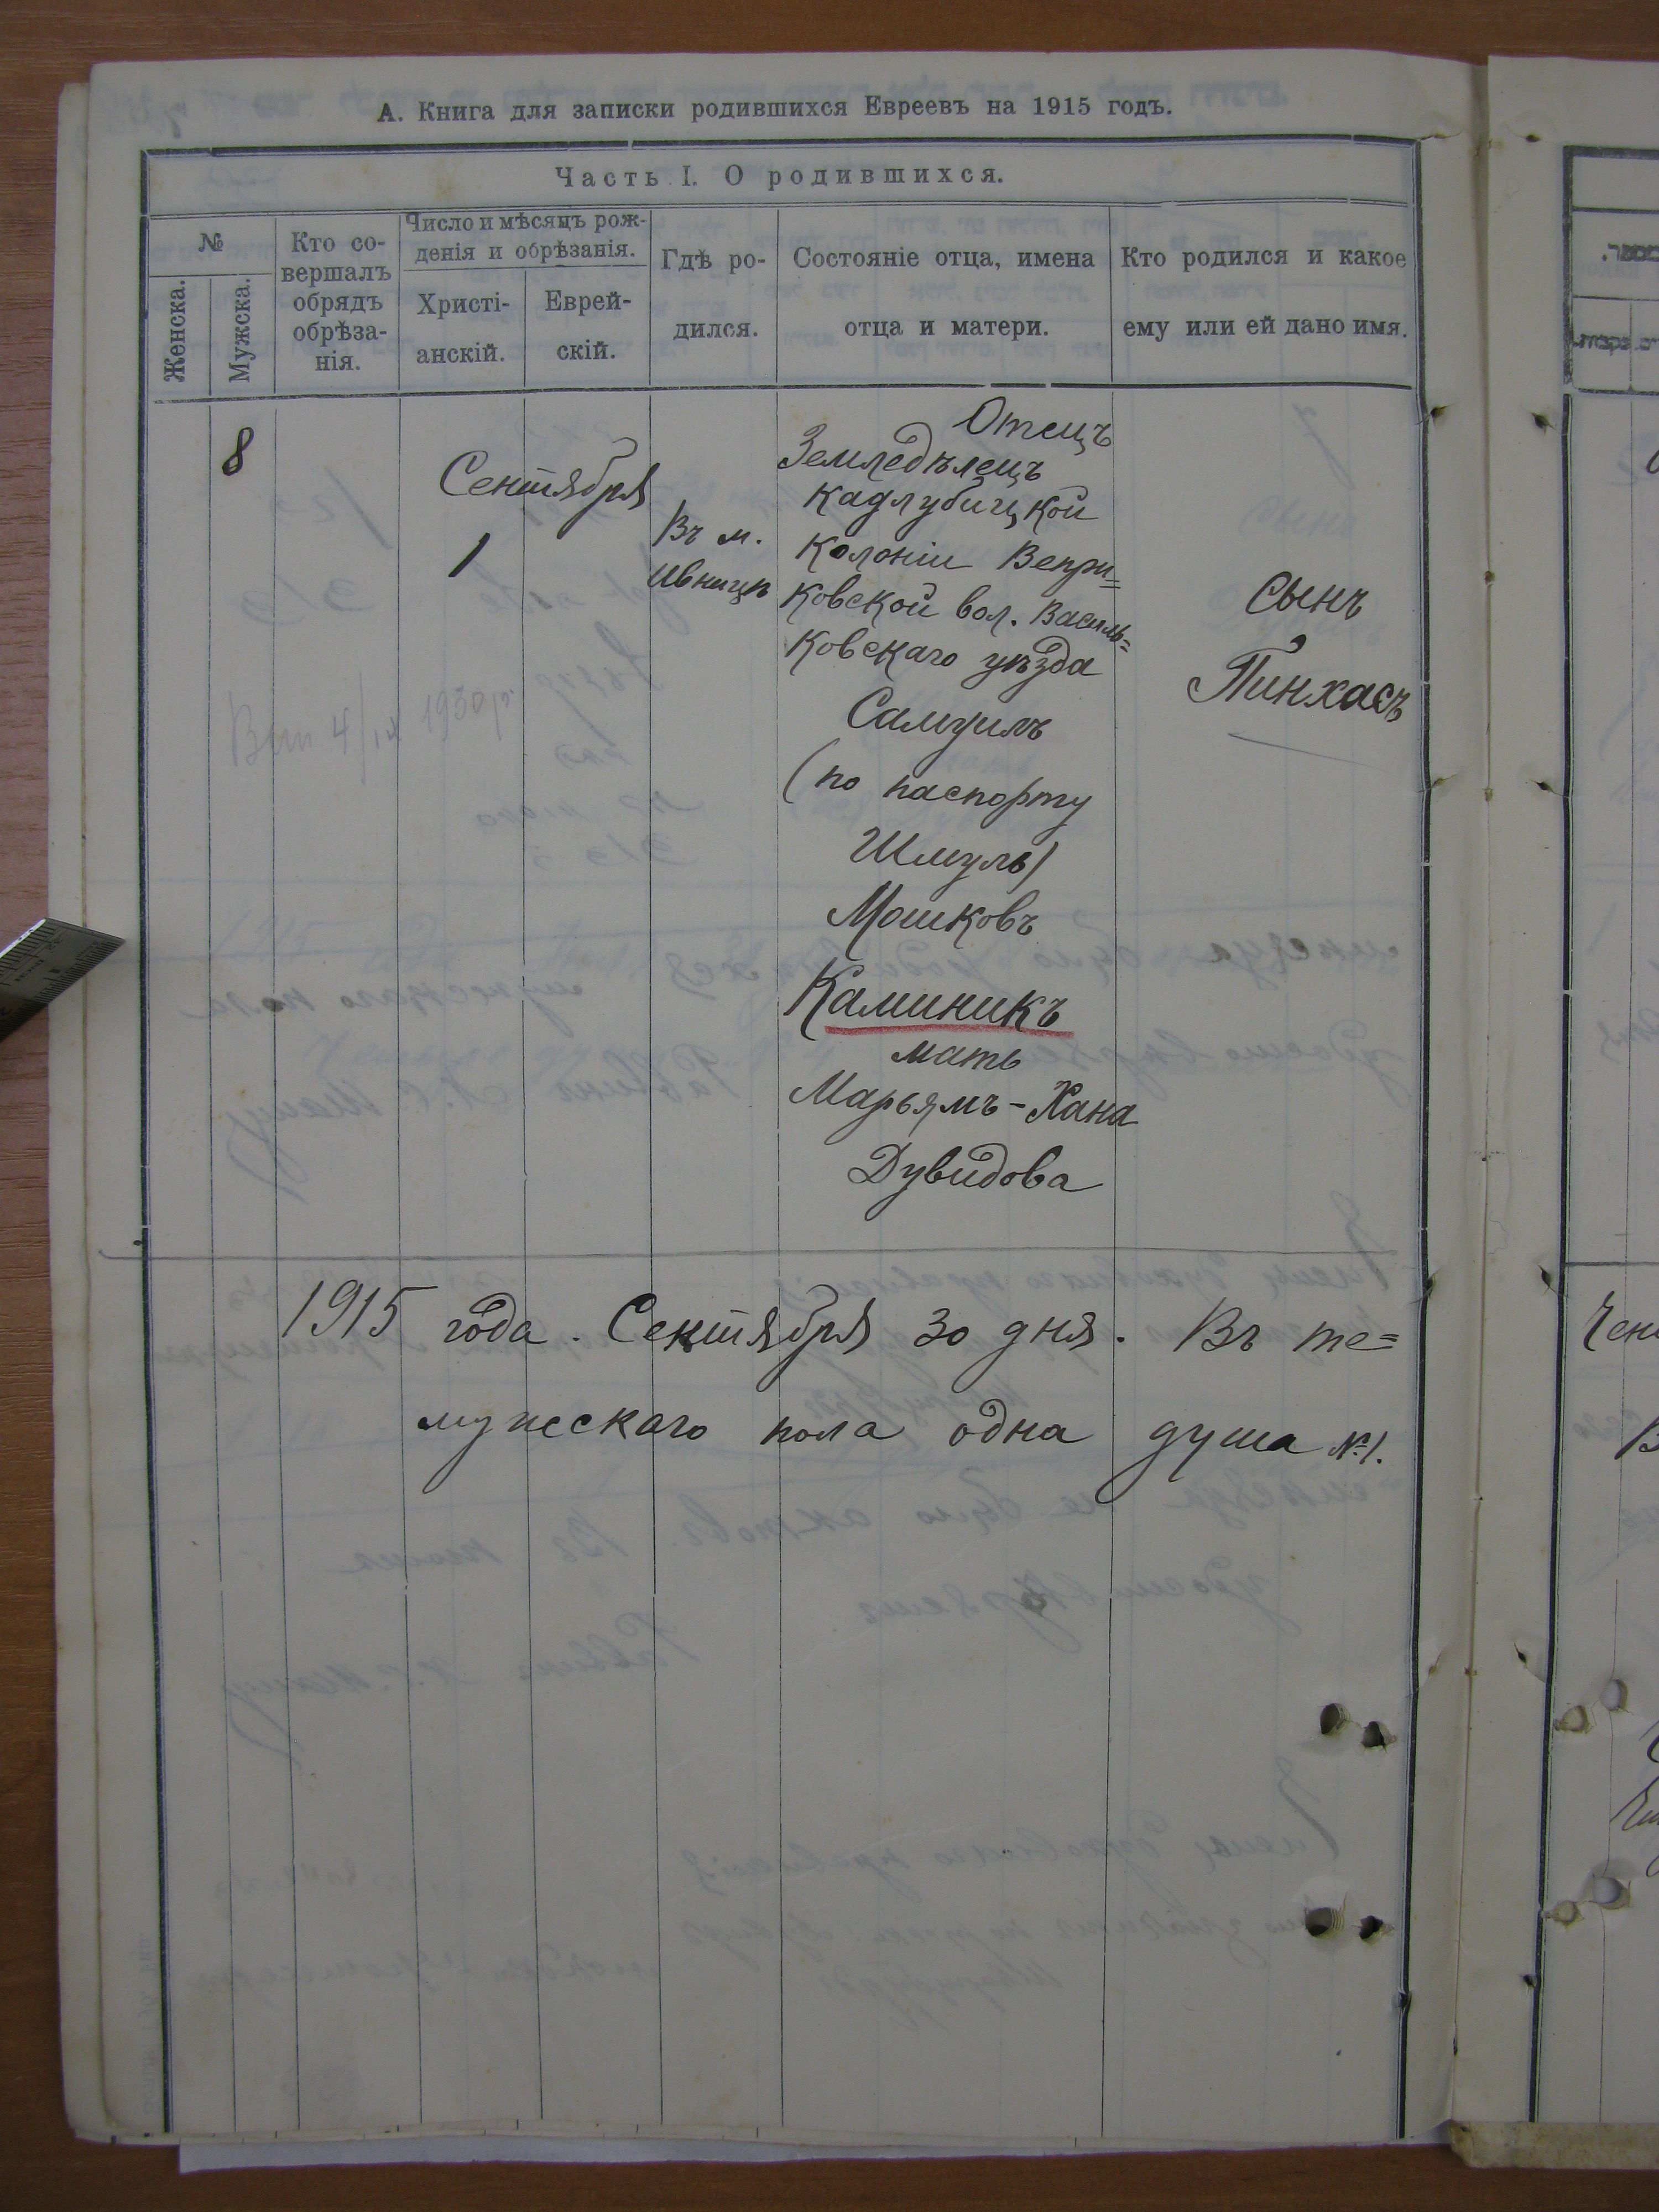 А. Книга для записки родившихся Евреевъ на 1915 годъ.
Часть I. О родившихся.
№
Женска.
Мужска.
Кто со-
вершалъ
обрядъ
обрѣза-
нія.
Число и мѣсяцъ рож-
денія и обрѣзанія.
Христі-
анскій.
Еврей-
скій.
Гдѣ ро-
дился.
Состояніе отца, имена
отца и матери.
Кто родился и какое
ему или ей дано имя.
8
Сентября
1
Въ м.
Ивницѣ
Отецъ
Земледѣлецъ
Кадлубицкой
Колоніи Вепри=
ковской вол. Василь=
ковскаго уѣзда
Самуилъ
(по паспорту
Шмуль)
Мошковъ
Каминикъ
мать
Марьямъ-Хана
Дувидова
сынъ
Пинхасъ
1930 р.
1915 года. Сентября 30 дня. Въ те=
мужескаго пола одна душа №1.